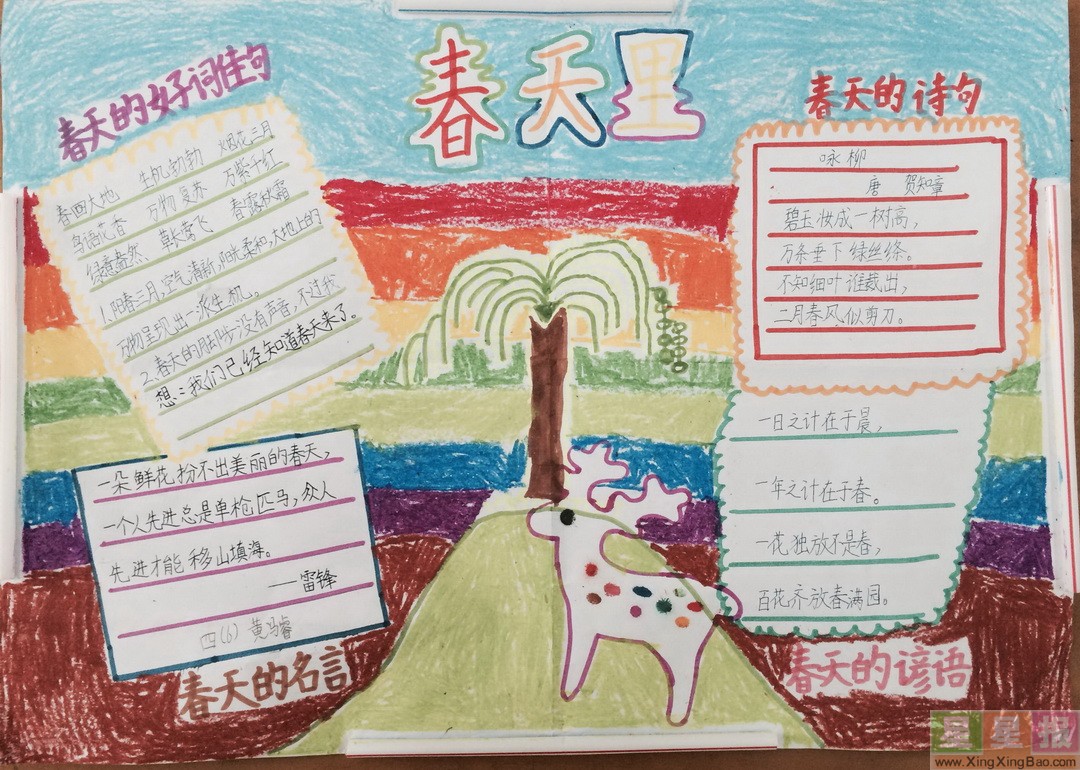 春天里
春天的好词佳句
春回大地 生机勃勃 烟花三月
鸟语花香 万物复苏 万紫千红
绿意盎然 草长莺飞 春露秋霜
1.阳春三月,空气清新,阳光柔和,大地上的
万物呈现出一派生机。
2.春天的脚步没有声音,不过我
想:我们已经知道春天来了。
一朵鲜花扮不出美丽的春天,
一个人先进总是单枪匹马,众人
先进才能移山填海。
——雷锋
四(6) 黄马睿
春天的名言
春天的诗句
咏柳
唐 贺知章
碧玉妆成一树高,
万条垂下绿丝绦。
不知细叶谁裁出,
二月春风似剪刀。
一日之计在于晨,
一年之计在于春。
一花独放不是春,
百花齐放春满园。
春天的谚语
星星报
www.XingXingBao.com